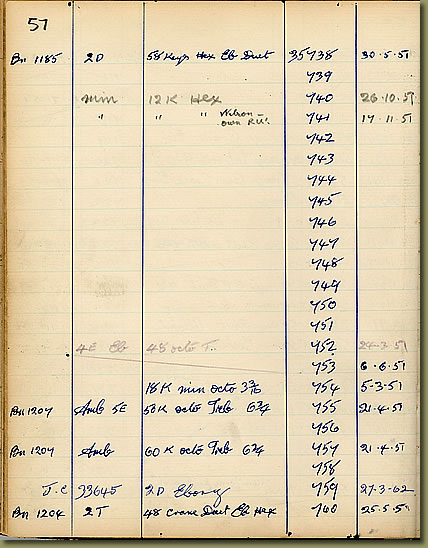 57
Bn 1185 2D 58 Keys Hex Eb Duet 35738 30.5.51
739
min 12 K Hex 740 26.10.51
" " " Wilson 741 17.11.51
own
742
743
744
745
746
747
748
749
750
751
4E Eb 48 octo T.. 752 24.3.51
753 6.6.51
18 K min octo 754 5-3-51
Bn 1207 Amb 5E 56 K octo Treb 6¾ 755 21.4.51
756
Bn 1207 Amb 60 K octo Treb 6¾ 757 21.4.51
758
J.C 33645 2D Ebony 759 27-3-62
Bn 1204 2T 48 Crane Duet Eb Hex 760 25.5.5